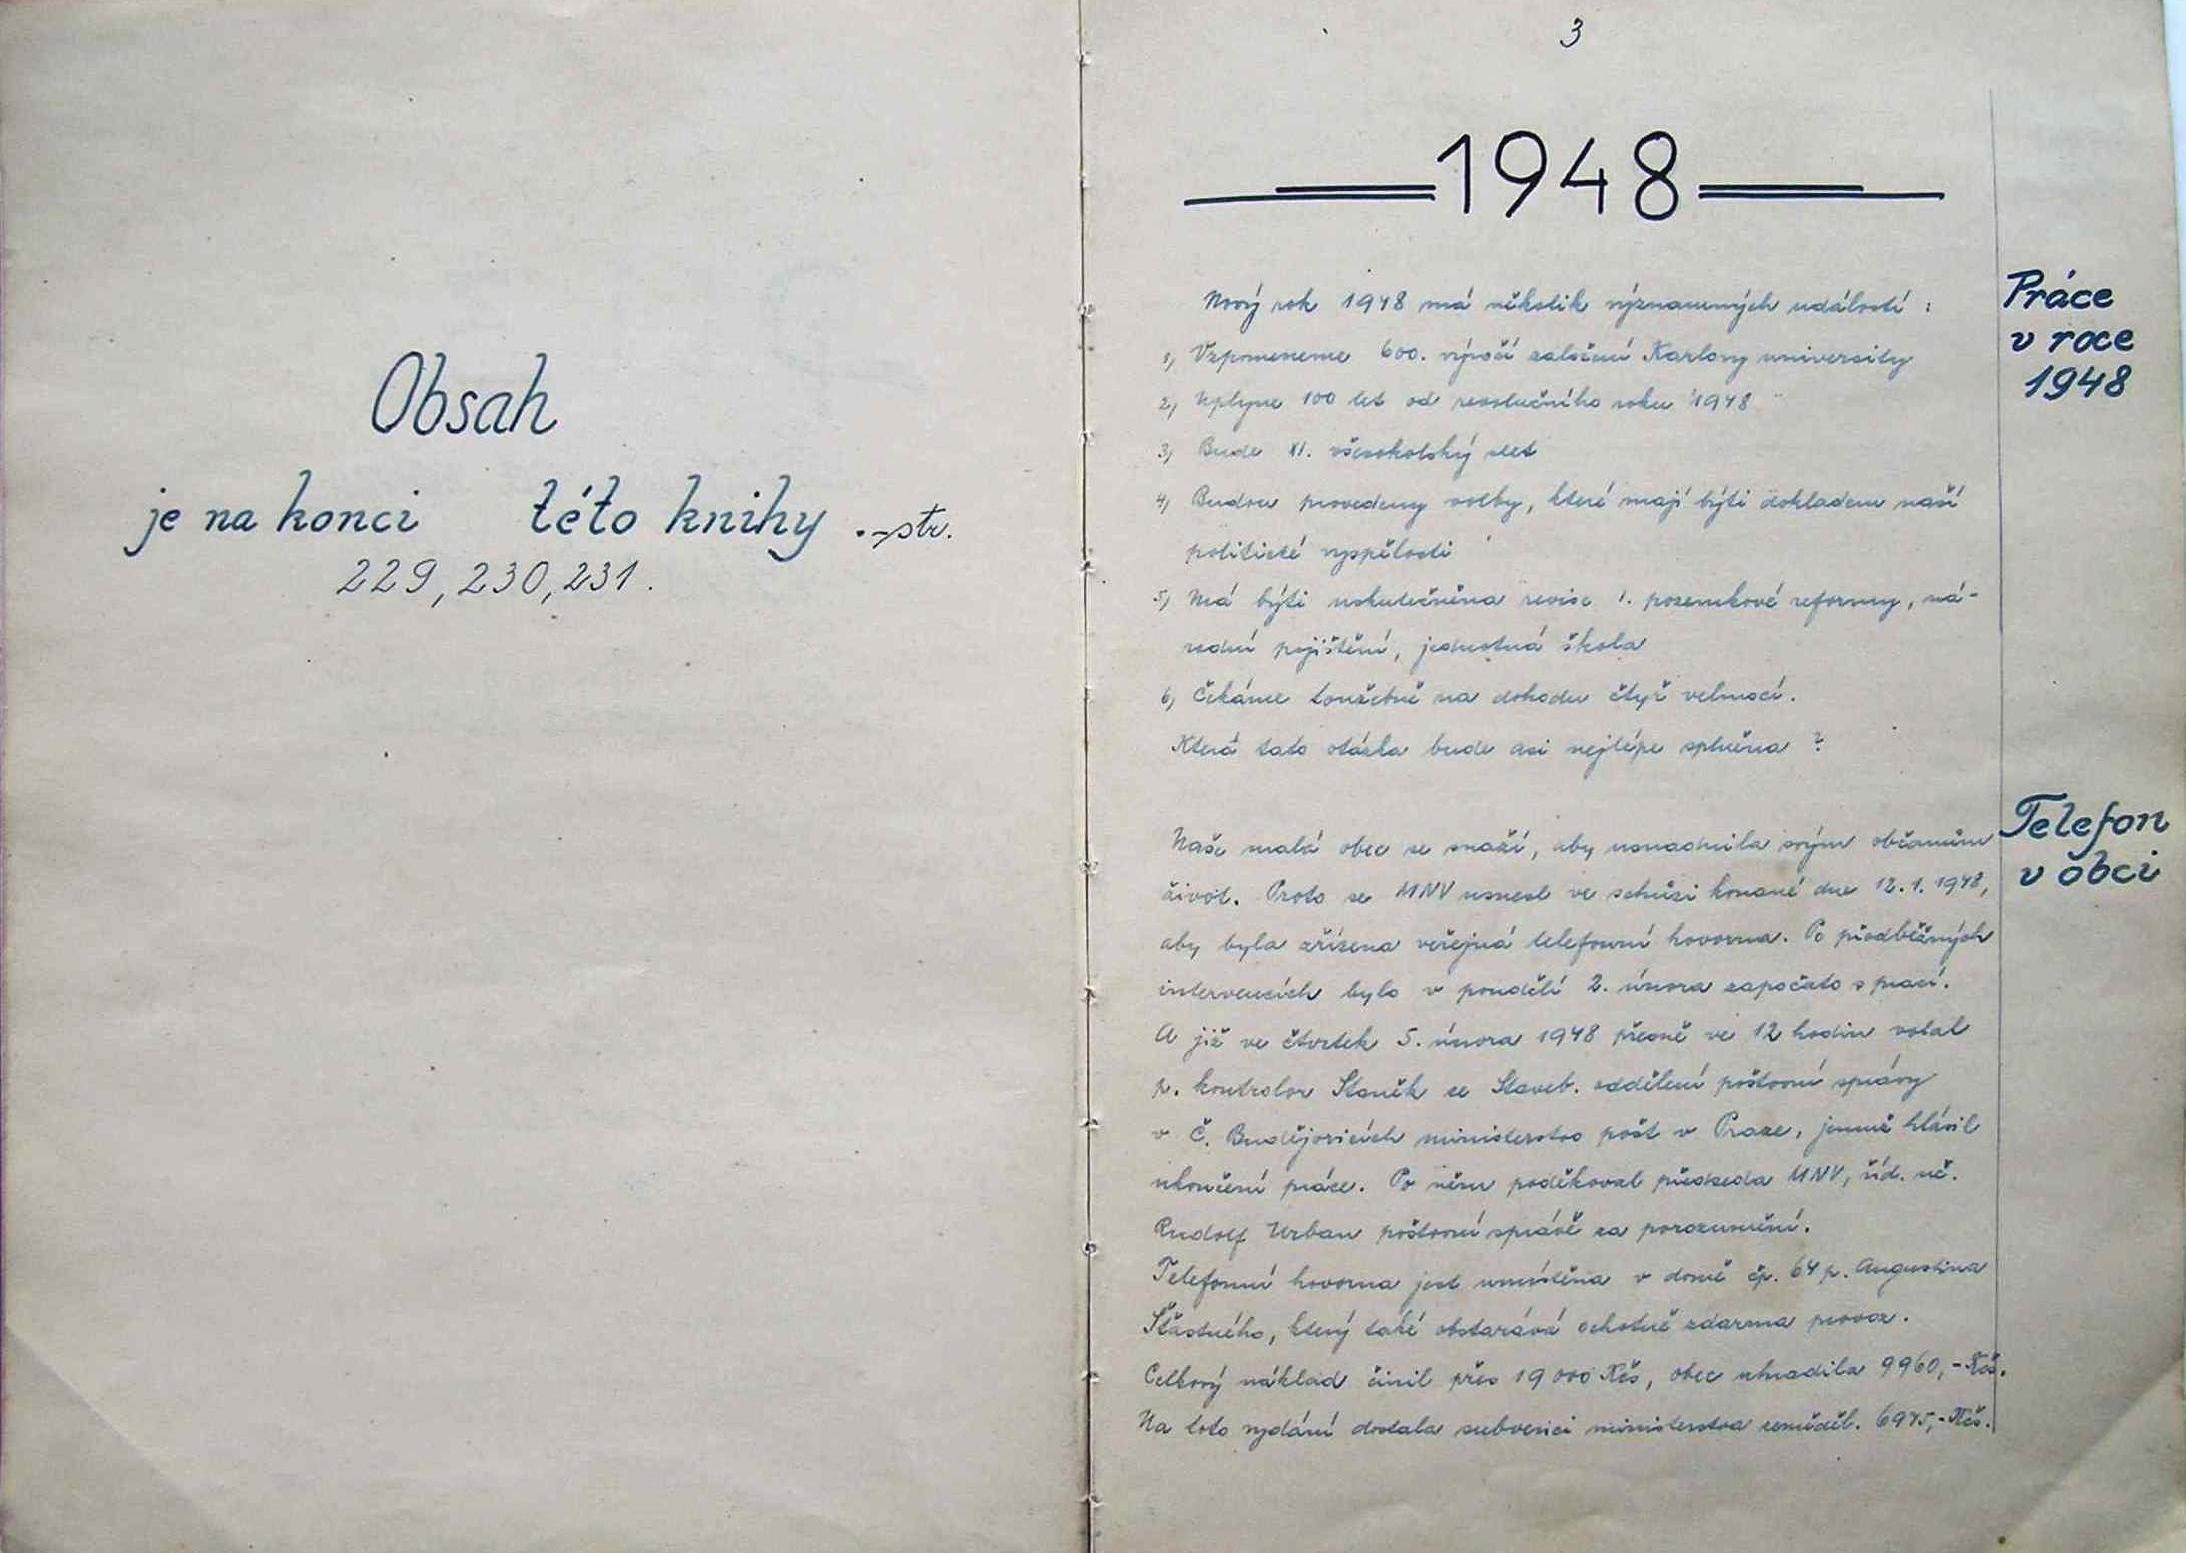 Obsah
je na konci této knihy .-str.
229, 230, 231.
3
1948
Práce
v roce
1948
Nový rok 1948 má několik významných událostí :
1) Vzpomeneme 600. výročí založení Karlovy university
2) Uplyne 100 let od revolučního roku 1948
3) Bude XI. všesokolský slet
4) Budou provedeny volby, které mají býti dokladem naší
politické vyspělosti
5) Má býti uskutečněna revise 1. pozemkové reformy, ná-
rodní pojištění, jednotná škola
6) Čekáme toužebně na dohodu čtyř velmocí.
Která tato otázka bude asi nejlépe splněna ?
Telefon
v obci
Naše malá obec se snaží, aby usnadnila svým občanům
život. Proto se MNV usnesl ve schůzi konané dne 12. 1. 1948,
aby byla zřízena veřejná telefonní hovorna. Po předběžných
intervencích bylo v pondělí 2. února započato s prací.
A již ve čtvrtek 5. února 1948 přesně ve 12 hodin volal
p. kontrolor Staněk ze Staveb. oddělení poštovní správy
v Č. Budějovicích ministerstvo pošt v Praze, jemuž hlásil
ukončení práce. Po něm poděkoval předseda MNV, říd. uč.
Rudolf Urban poštovní správě za porozumění.
Telefonní hovorna jest umístěna v domě čp. 64 p. Augustina
Šťastného, který také obstarává ochotně zdarma provoz.
Celkový náklad činil přes 19 000 Kčs, obec uhradila 9960,- Kčs.
Na toto vydání dostala subvenci ministerstva zeměděl. 6975,- Kčs.